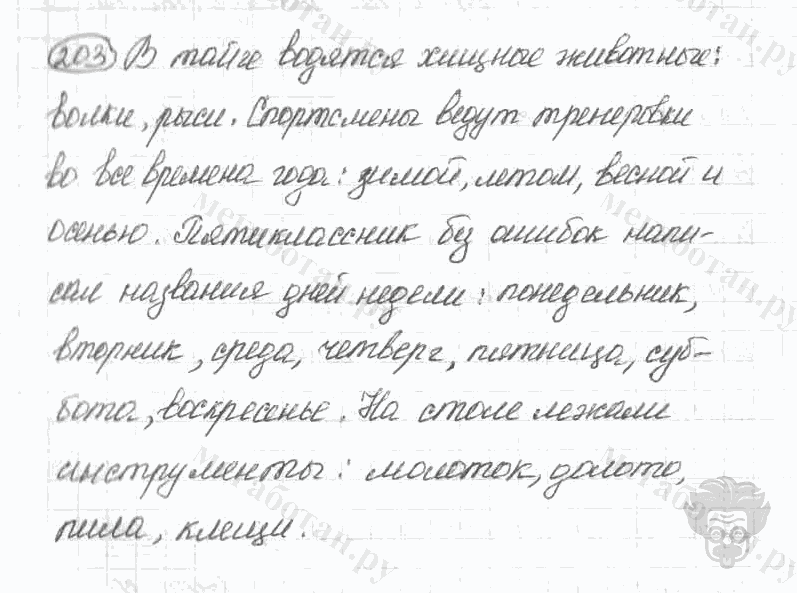 203 В тайге водятся хищные животные:
волки, рыси. Спортсмены ведут тренеровки
во все времена года: зимой, летом, весной и
осенью. Пятиклассник без ошибок напи-
сал названия дней недели: понедельник,
вторник, среда, четверг, пятница, суб-
бота, воскресенье. На столе лежали
инструменты: молоток, долото,
пила, клещи.
мегаботан.ру